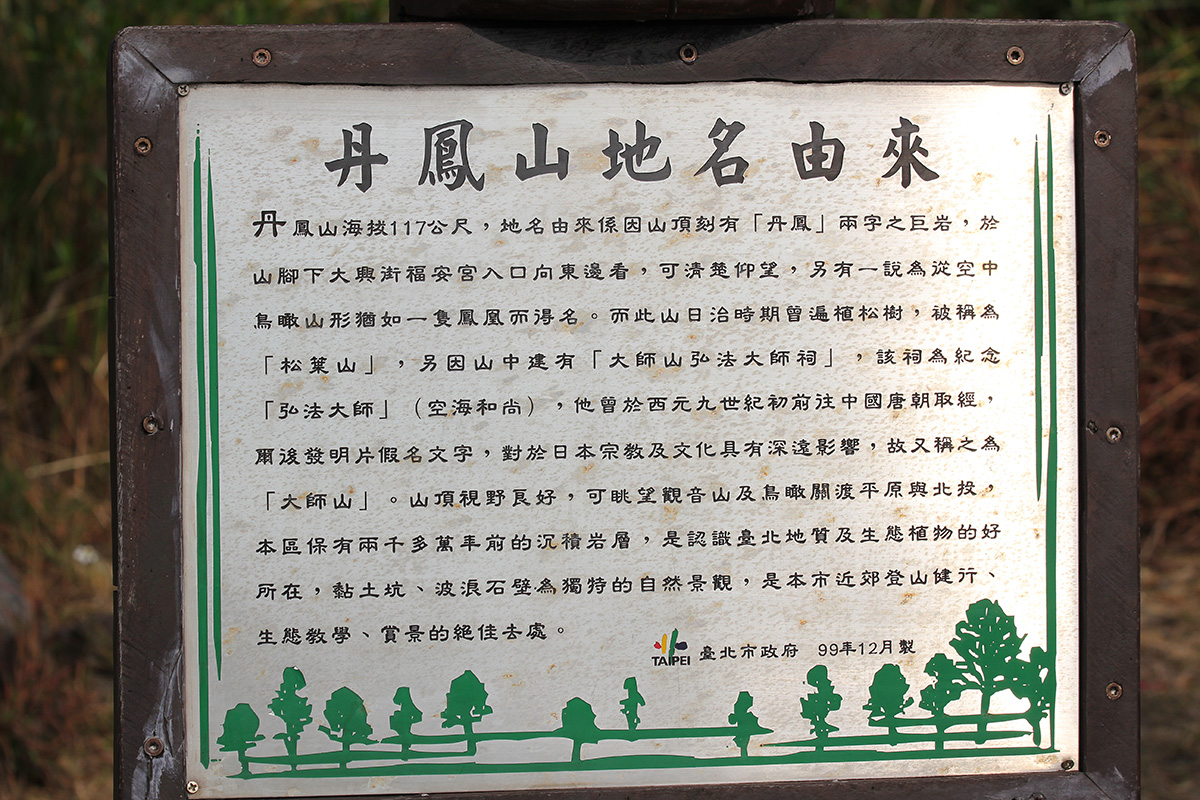 丹鳳山地名由來
丹鳳山海拔117公尺，地名由來係因山頂刻有「丹鳳」兩字之巨岩，於
山腳下大興街福安宮入口向東邊看，可清楚仰望，另有一說為從空中
鳥瞰山形猶如一隻鳳凰而得名。而此山日治時期曾遍植松樹，被稱為
「松葉山」，另因山中建有「大師山弘法大師祠」，該祠為紀念
「弘法大師」（空海和尚），他曾於西元九世紀初前往中國唐朝取經，
爾後發明片假名文字，對於日本宗教及文化具有深遠影響，故又稱之為
「大師山」。山頂視野良好，可眺望觀音山及鳥瞰關渡平原與北投。
本區保有兩千多萬年前的沉積岩層，是認識臺北地質及生態植物的好
所在，黏土坑、波浪石壁為獨特的自然景觀，是本市近郊登山健行、
生態教學、賞景的絕佳去處。
TAIPEI 臺北市政府 99年12月製